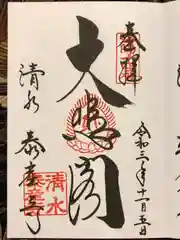 奉拝
令和三年十一月五日
大悲閣
清水 泰産寺
清水